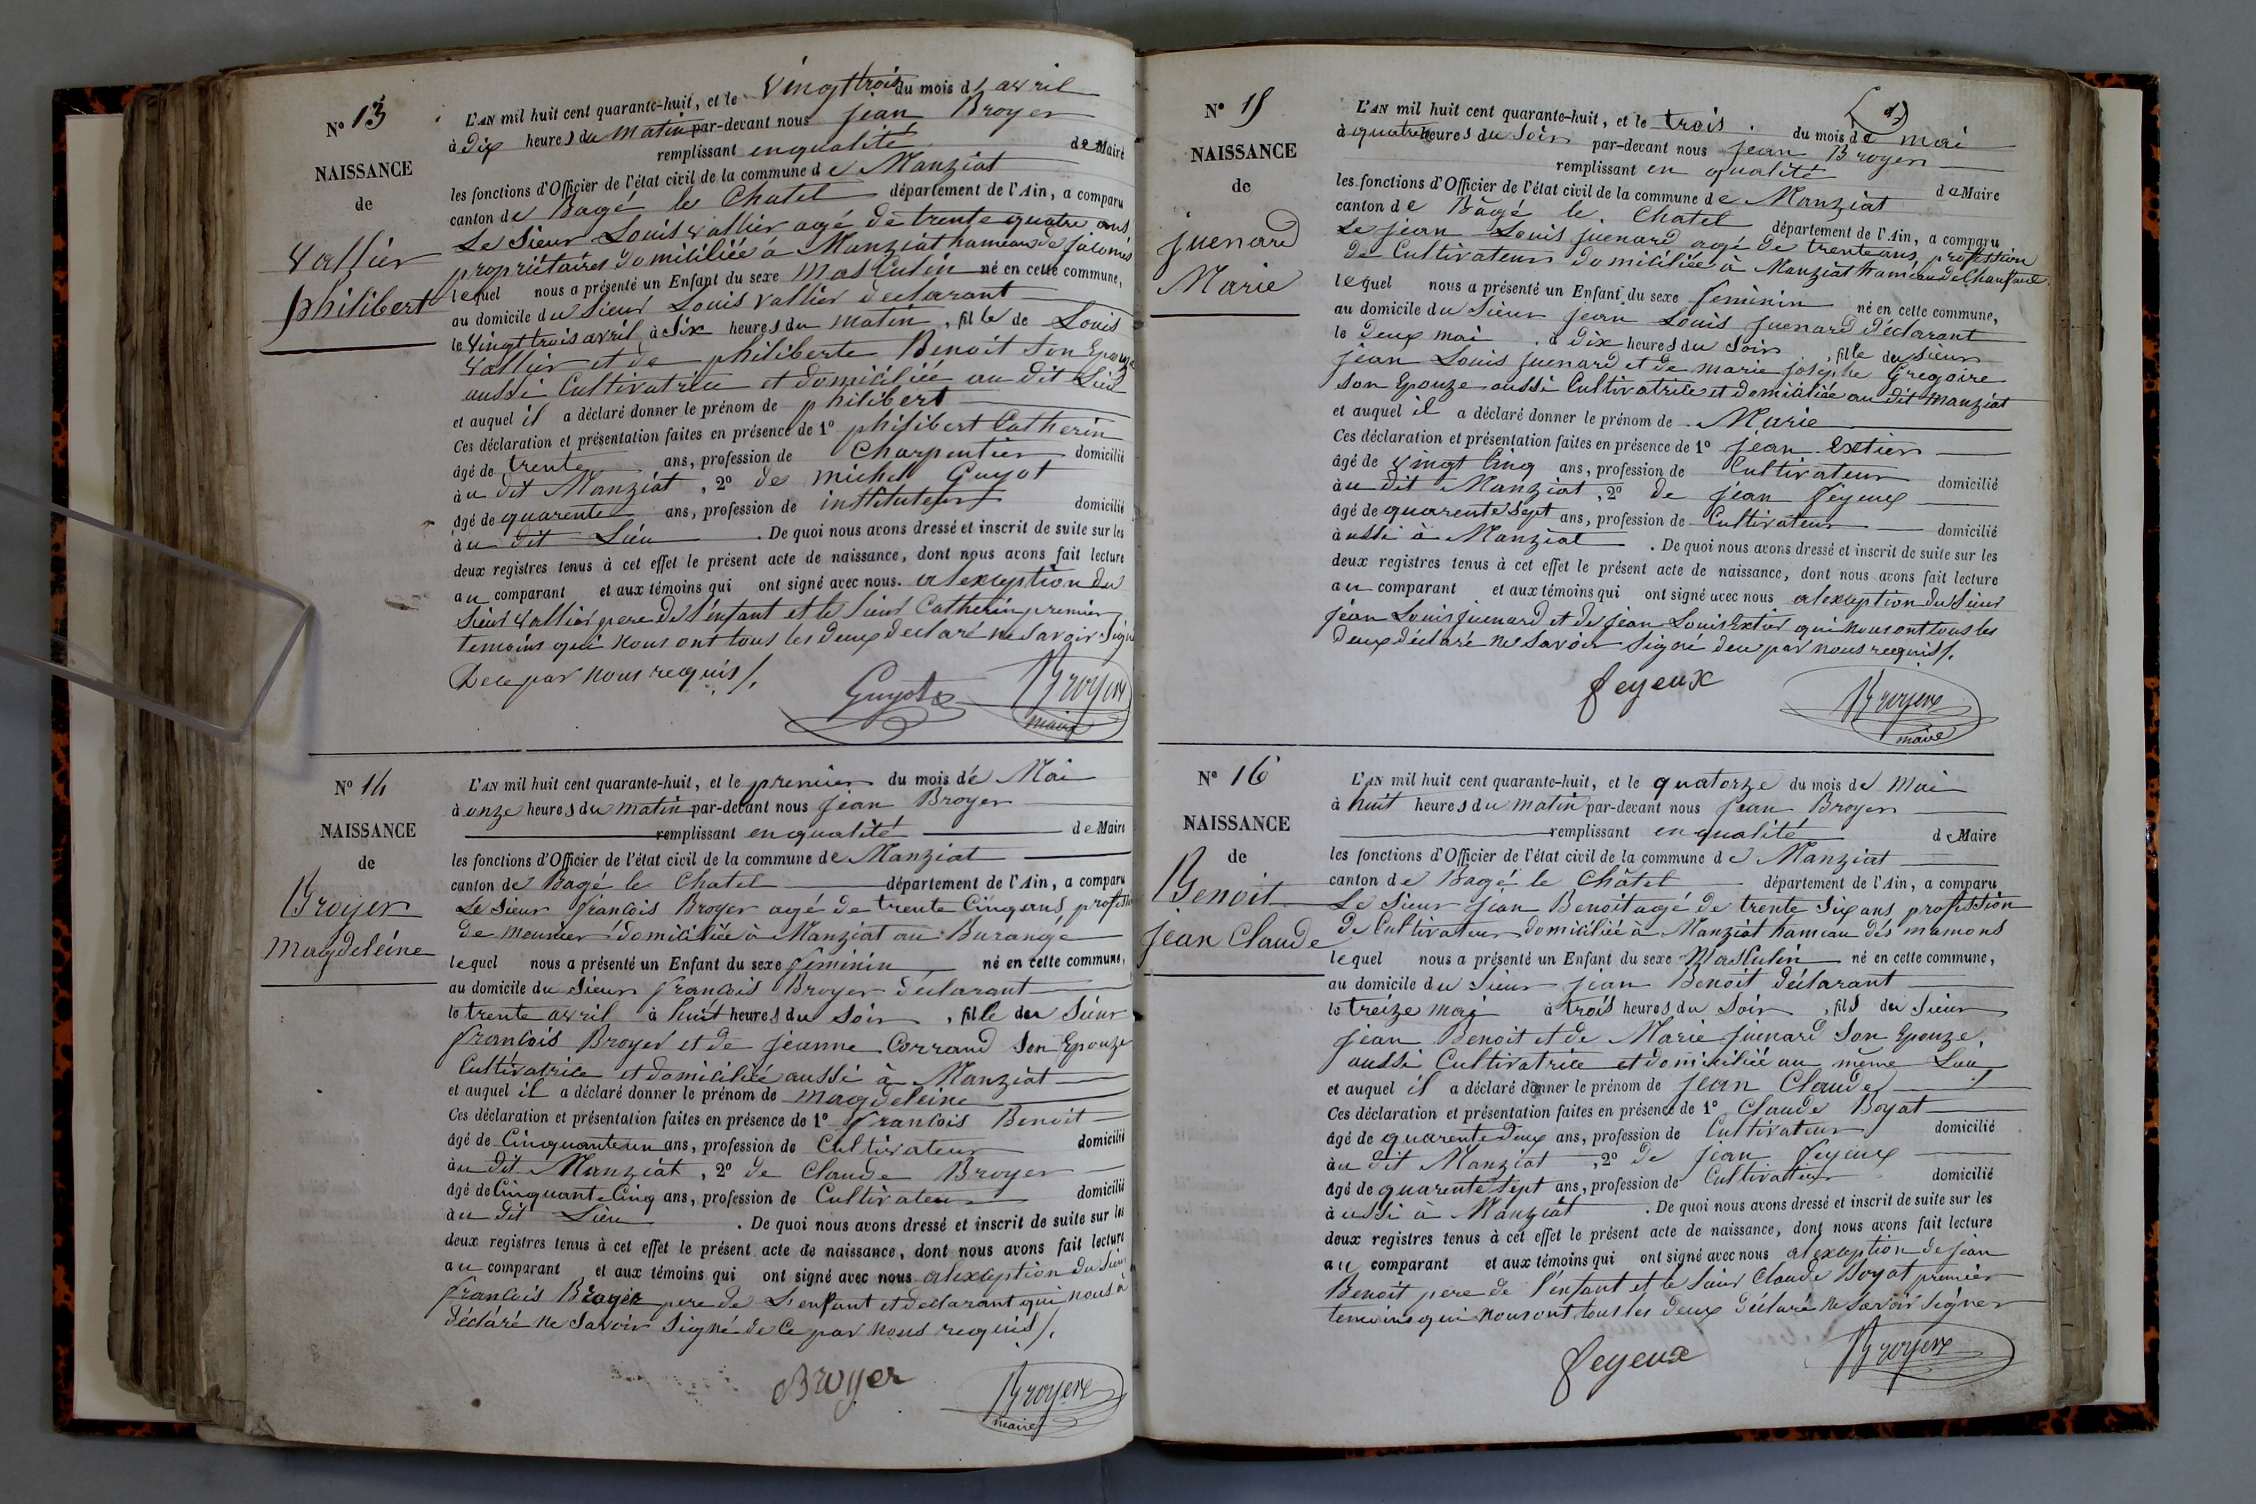 N° 13
NAISSANCE
de
Vallier
philibert
L'AN mil huit cent quarante-huit, et le Vingt trois du mois d'avril
à dix heures du matin par-devant nous jean Broyer
remplissant en qualité de Maire
les fonctions d'Officier de l'état civil de la commune de Manziat
canton de Bagé le Chatel département de l'Ain, a comparu
Le Sieur Louis Vallier agé de trente quatre ans
propriétaires domiciliée à Manziat hameau de
lequel nous a présenté un Enfant du sexe masculin né en cette commune,
au domicile du Sieur Louis Vallier declarant
le Vingt trois avril à Six heures du matin, fil de Louis
Vallier et de philiberte Benoit Son Epouze
aussi Cultivatrice et domiciliée au dit Lieu
et auquel il a déclaré donner le prénom de philibert
Ces déclaration et présentation faites en présence de 1° philibert Catherin
âgé de trente ans, profession de Charpentier domicilié
au dit Manziat, 2° de michel Guyot
âgé de quarente ans, profession de instituteur domicilié
au dit Lieu. De quoi nous avons dressé et inscrit de suite sur les
deux registres tenus à cet effet le présent acte de naissance, dont nous avons fait lecture
au comparant et aux témoins qui ont signé avec nous. alexception du
Sieur Vallier pere de l'enfant et le Sieur Catherin premier
temoins qui nous ont tous les deux declaré ne Savoir Signé
De ce par nous requis /.
Guyot Broyer
maire
N° 14
NAISSANCE
de
Broyer
magdeleine
L'AN mil huit cent quarante-huit, et le premier du mois de Mai
à onze heures du matin par-devant nous jean Broyer
remplissant en qualité de Maire
les fonctions d'Officier de l'état civil de la commune de Manziat
canton de Bagé le Chatel département de l'Ain, a comparu
Le Sieur francois Broyer agé de trente Cinq ans, profession
de meunier domiciliée à Manziat au Burangé
lequel nous a présenté un Enfant du sexe féminin né en cette commune,
au domicile du Sieur francois Broyer declarant
le trente avril à huit heures du Soir, fille du Sieur
francois Broyer et de jeanne Corrand Son Epouze
Cultivatrice et domiciliée aussi à Manziat
et auquel il a déclaré donner le prénom de magdeleine
Ces déclaration et présentation faites en présence de 1° francois Benoit
âgé de Cinquante un ans, profession de Cultivateur domicilié
au dit Manziat, 2° de Claude Broyer
âgé de Cinquante Cinq ans, profession de Cultivateur domicilié
au dit Lieu. De quoi nous avons dressé et inscrit de suite sur les
deux registres tenus à cet effet le présent acte de naissance, dont nous avons fait lecture
au comparant et aux témoins qui ont signé avec nous alexception du Sieur
francois Broyer pere de L'enfant et declarant qui nous à
déclaré ne Savoir Signé de ce par nous requis /.
Broyer Broyer
maire
N° 15
NAISSANCE
de
juenard
Marie
L'AN mil huit cent quarante-huit, et le trois du mois de mai
à quatre heures du Soir par-devant nous jean Broyer
remplissant en qualité de Maire
les fonctions d'Officier de l'état civil de la commune de Manziat
canton de Bâgé le Chatel département de l'Ain, a comparu
Le jean Louis juenard agé de trente ans, profession
de Cultivateur domiciliée à Manziat hameau de
lequel nous a présenté un Enfant du sexe féminin né en cette commune,
au domicile du Sieur jean Louis juenard déclarant
le deux mai à dix heures du Soir, fille du Sieur
jean Louis juenard et de marie josephe Gregoire
son Epouze aussi Cultivatrice et domiciliée au dit manziat
et auquel il a déclaré donner le prénom de Marie
Ces déclaration et présentation faites en présence de 1° jean Extier
âgé de vingt Cinq ans, profession de Cultivateur domicilié
au dit Manziat, 2° de jean feyeux
âgé de quarente Sept ans, profession de Cultivateur domicilié
aussi à Manziat. De quoi nous avons dressé et inscrit de suite sur les
deux registres tenus à cet effet le présent acte de naissance, dont nous avons fait lecture
au comparant et aux témoins qui ont signé avec nous alexception du Sieur
jean Louis juenard et de jean Louis Extier qui nous ont tous les
deux déclaré ne Savoir Signé de ce par nous requis /.
feyeux Broyer
maire
N° 16
NAISSANCE
de
Benoit
jean Claude
L'AN mil huit cent quarante-huit, et le quatorze du mois de Mai
à huit heures du matin par-devant nous jean Broyer
remplissant en qualité de Maire
les fonctions d'Officier de l'état civil de la commune de Manziat
canton de Bagé le Châtel département de l'Ain, a comparu
Le Sieur jean Benoit agé de trente Six ans profession
de Cultivateur domiciliée à Manziat hameau des mamons
lequel nous a présenté un Enfant du sexe Masculin né en cette commune,
au domicile du Sieur jean Benoit déclarant
le treize mai à trois heures du Soir, fils du Sieur
jean Benoit et de Marie juenard Son Epouze,
aussi Cultivatrice et domiciliée au même Lieu
et auquel il a déclaré donner le prénom de jean Claude
Ces déclaration et présentation faites en présence de 1° Claude Boyat
âgé de quarente deux ans, profession de Cultivateur domicilié
au dit Manziat, 2° de jean feyeux
âgé de quarente sept ans, profession de Cultivateur domicilié
aussi à Manziat. De quoi nous avons dressé et inscrit de suite sur les
deux registres tenus à cet effet le présent acte de naissance, dont nous avons fait lecture
au comparant et aux témoins qui ont signé avec nous alexception de jean
Benoit pere de l'enfant et le Sieur Claude Boyat premier
temoins qui nous ont tous les deux déclaré ne Savoir Signer
feyeux Broyer